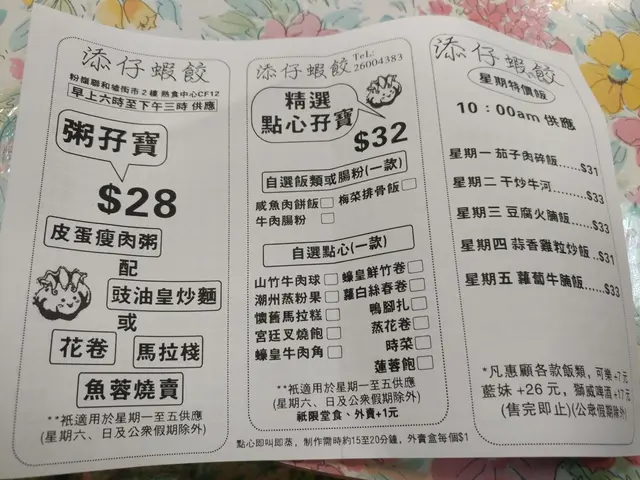 添仔蝦餃
粉嶺聯和墟街市2樓 熟食中心CF12
早上六時至下午三時 供應
粥孖寶
$28
皮蛋瘦肉粥
配
豉油皇炒麵
或
花卷 馬拉棧
魚蓉燒賣
**祇適用於星期一至五供應
(星期六、日及公衆假期除外)
添仔蝦餃 TEL: 26004383
精選
點心孖寶
$32
自選飯類或腸粉(一款)
咸魚肉餅飯 梅菜排骨飯
牛肉腸粉
自選點心(一款)
山竹牛肉球 蠔皇鮮竹卷
潮州蒸粉果 蘿白絲春卷
懷舊馬拉糕 鴨腳扎
宮廷叉燒飽 蒸花卷
蠔皇牛肉角 時菜
蓮蓉飽
**祇適用於星期一至五供應
(星期六、日及公衆假期除外)
祇限堂食、外賣+1元
添仔蝦餃
星期特價飯
10：00am 供應
星期一 茄子肉碎飯......$31
星期二 干炒牛河......$33
星期三 豆腐火腩飯......$33
星期四 蒜香雞粒炒飯...$31
星期五 蘿蔔牛腩飯......$33
*凡惠顧各款飯類，可樂+7元
藍妹 +26元，獅威啤酒+17元
(售完即止)(公衆假期除外)
點心即叫即蒸，制作需時約15至20分鐘，外賣盒每個$1